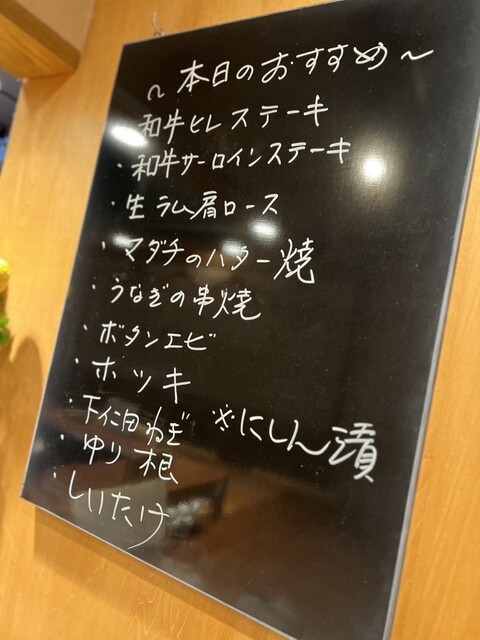 ～本日のおすすめ～
和牛ヒレステーキ
・和牛サーロインステーキ
・生ラム肩ロース
・マダチのバター焼
・うなぎの串焼
・ボタンエビ
・ホッキ
・下仁田ねぎ ※にしん漬
・ゆり根
・しいたけ